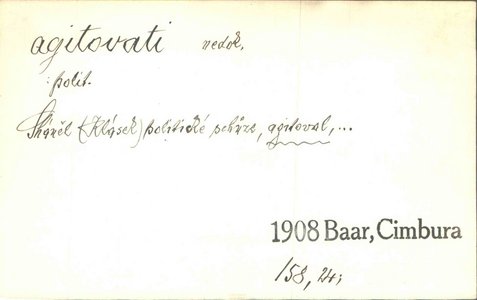 agitovati nedok.
polit.
Sháněl (Klásek) politické schůze, agitoval, ...
1908 Baar, Cimbura
158, 24;